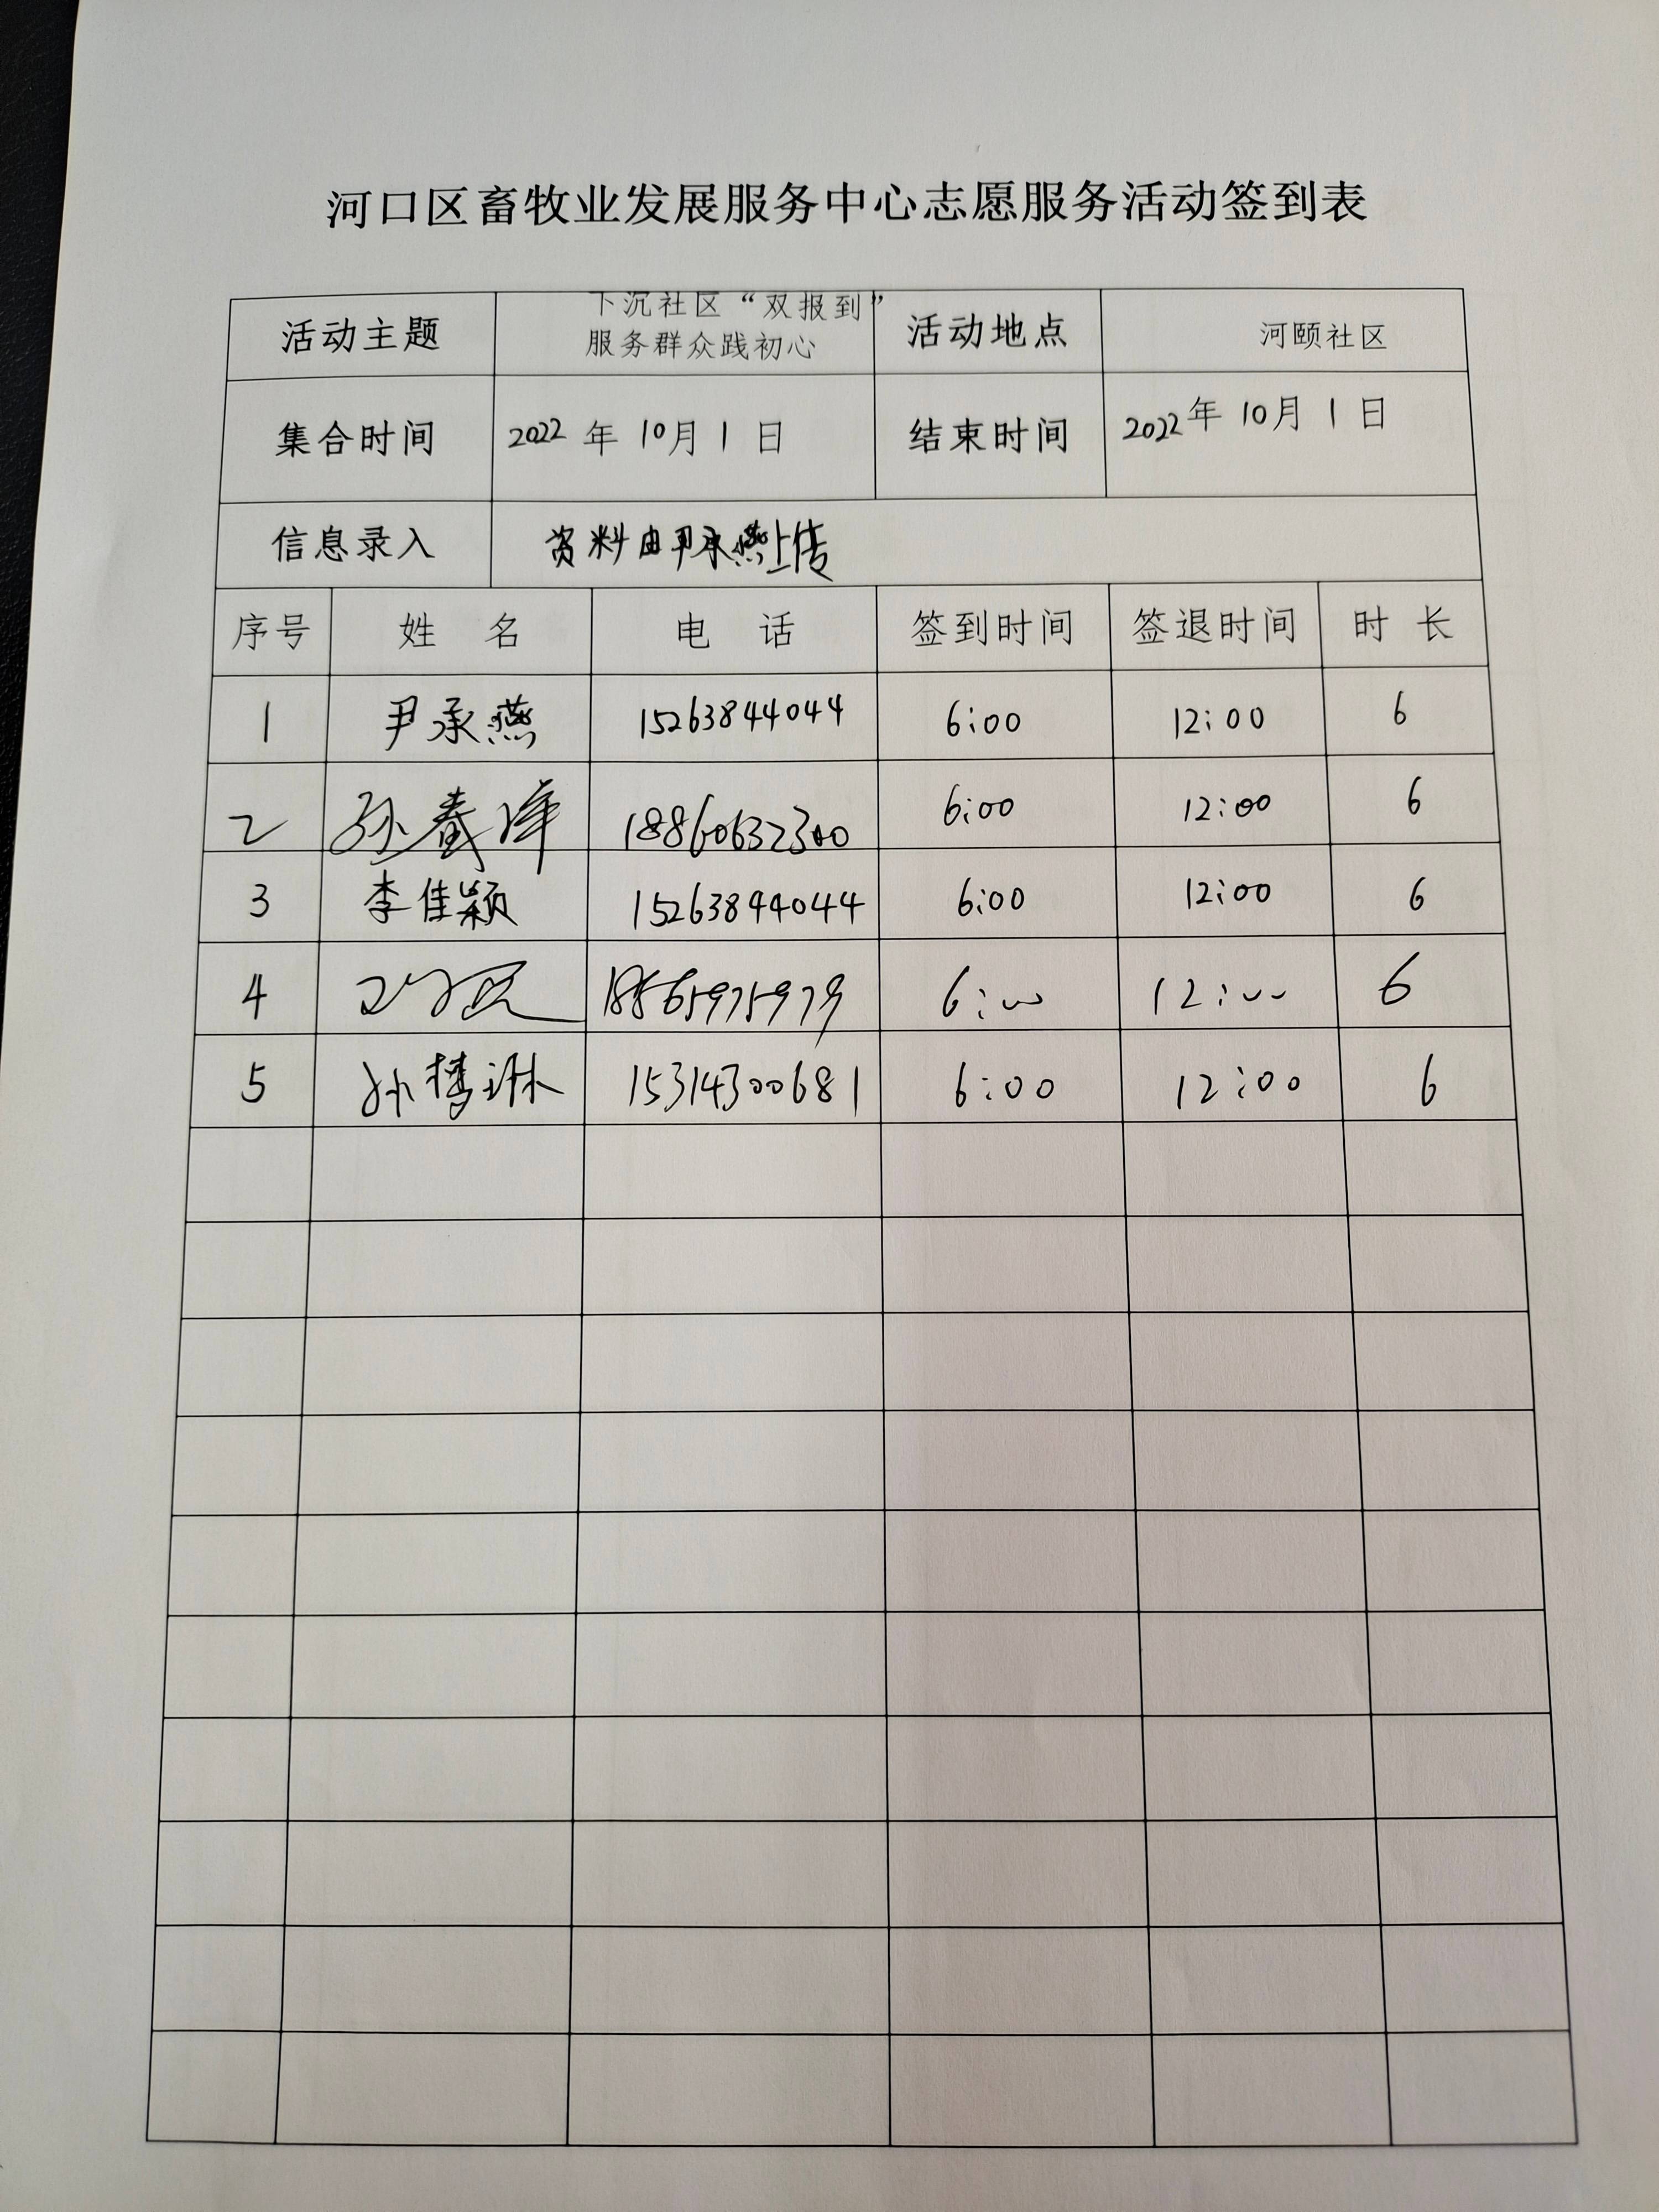 河口区畜牧业发展服务中心志愿服务活动签到表
活动主题 下沉社区“双报到” 服务群众践初心 活动地点 河颐社区
集合时间 2022 年 10月 1 日 结束时间 2022年 10月 1 日
信息录入 资料由尹承燕上传
序号 姓 名 电 话 签到时间 签退时间 时 长
1 尹承燕 15263844044 6:00 12:00 6
2 孙春 18860632300 6:00 12:00 6
3 李佳颖 15263844044 6:00 12:00 6
4 18565975979 6:00 12:00 6
5 孙梦琳 15314300681 6:00 12:00 6